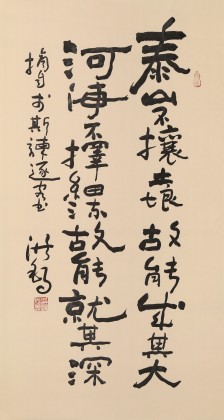 泰山不攘壤故能成其大
河海不擇細故能就其深
摘自李斯諫逐客書